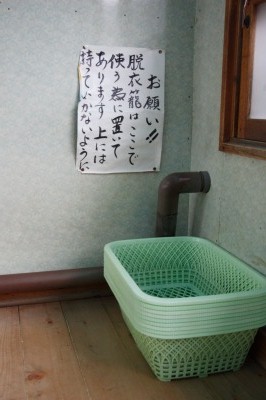 お願い!!
脱衣籠はここで
使う為に置いて
あります 上には
持っていかないように